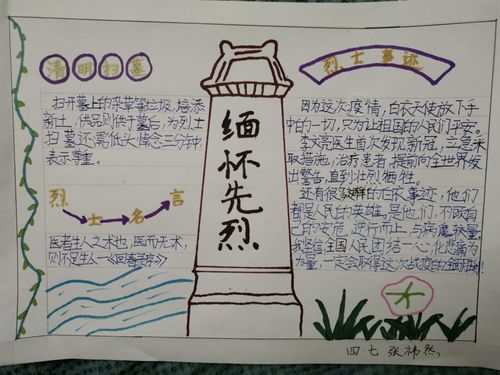 清明扫墓
扫开墓上的杂草等垃圾,增添
新土,供品则供于墓后,为烈士
扫墓还需低头悼念三分钟,
表示尊重。
烈士名言
医者生人之术也,医而无术,
则不足生人—《回春录序》
缅怀先烈
烈士事迹
因为这次疫情,白衣天使放下手
中的一切,只为让祖国的人民们平安。
李文亮医生首次发现新冠,立意采
取措施,治疗患者,提前向全世界发
出警告,直到壮烈牺牲。
还有很多这样的白衣事迹,他们
都是人民的英雄,是他们,不顾自
己的安危,逆行而上,与病魔较量,
我坚信全国人民团结一心,化悲痛为
力量,一定会取得这次战疫的全面胜利!
四 七 张祎然